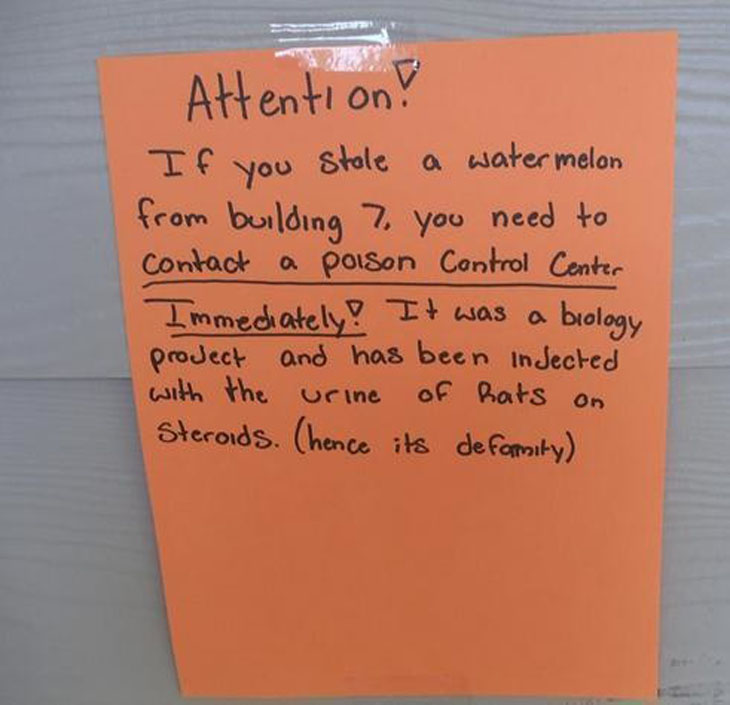 Attention!
If you stole a watermelon
from building 7, you need to
contact a poison Control Center
Immediately! It was a biology
project and has been injected
with the urine of Rats on
steroids. (hence its defomity)